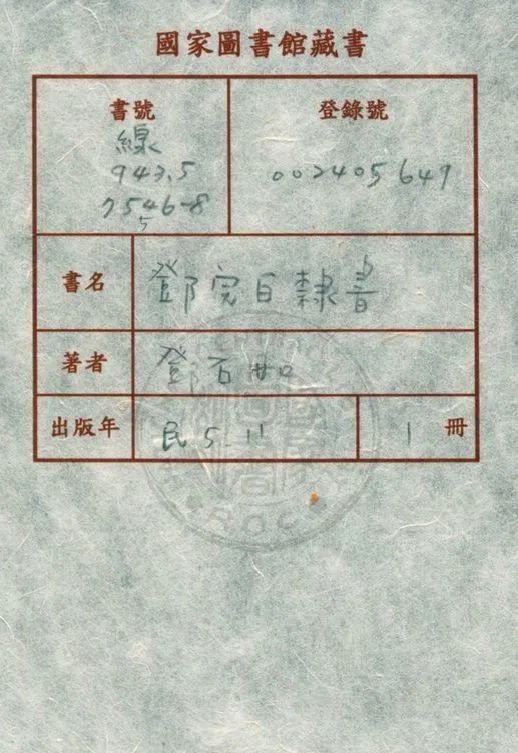 國家圖書館藏書
書號
線
943.5
7546-8
5
登錄號
002405647
書名
鄧完白隸書
著者
鄧石如
出版年
民5-11
1 冊